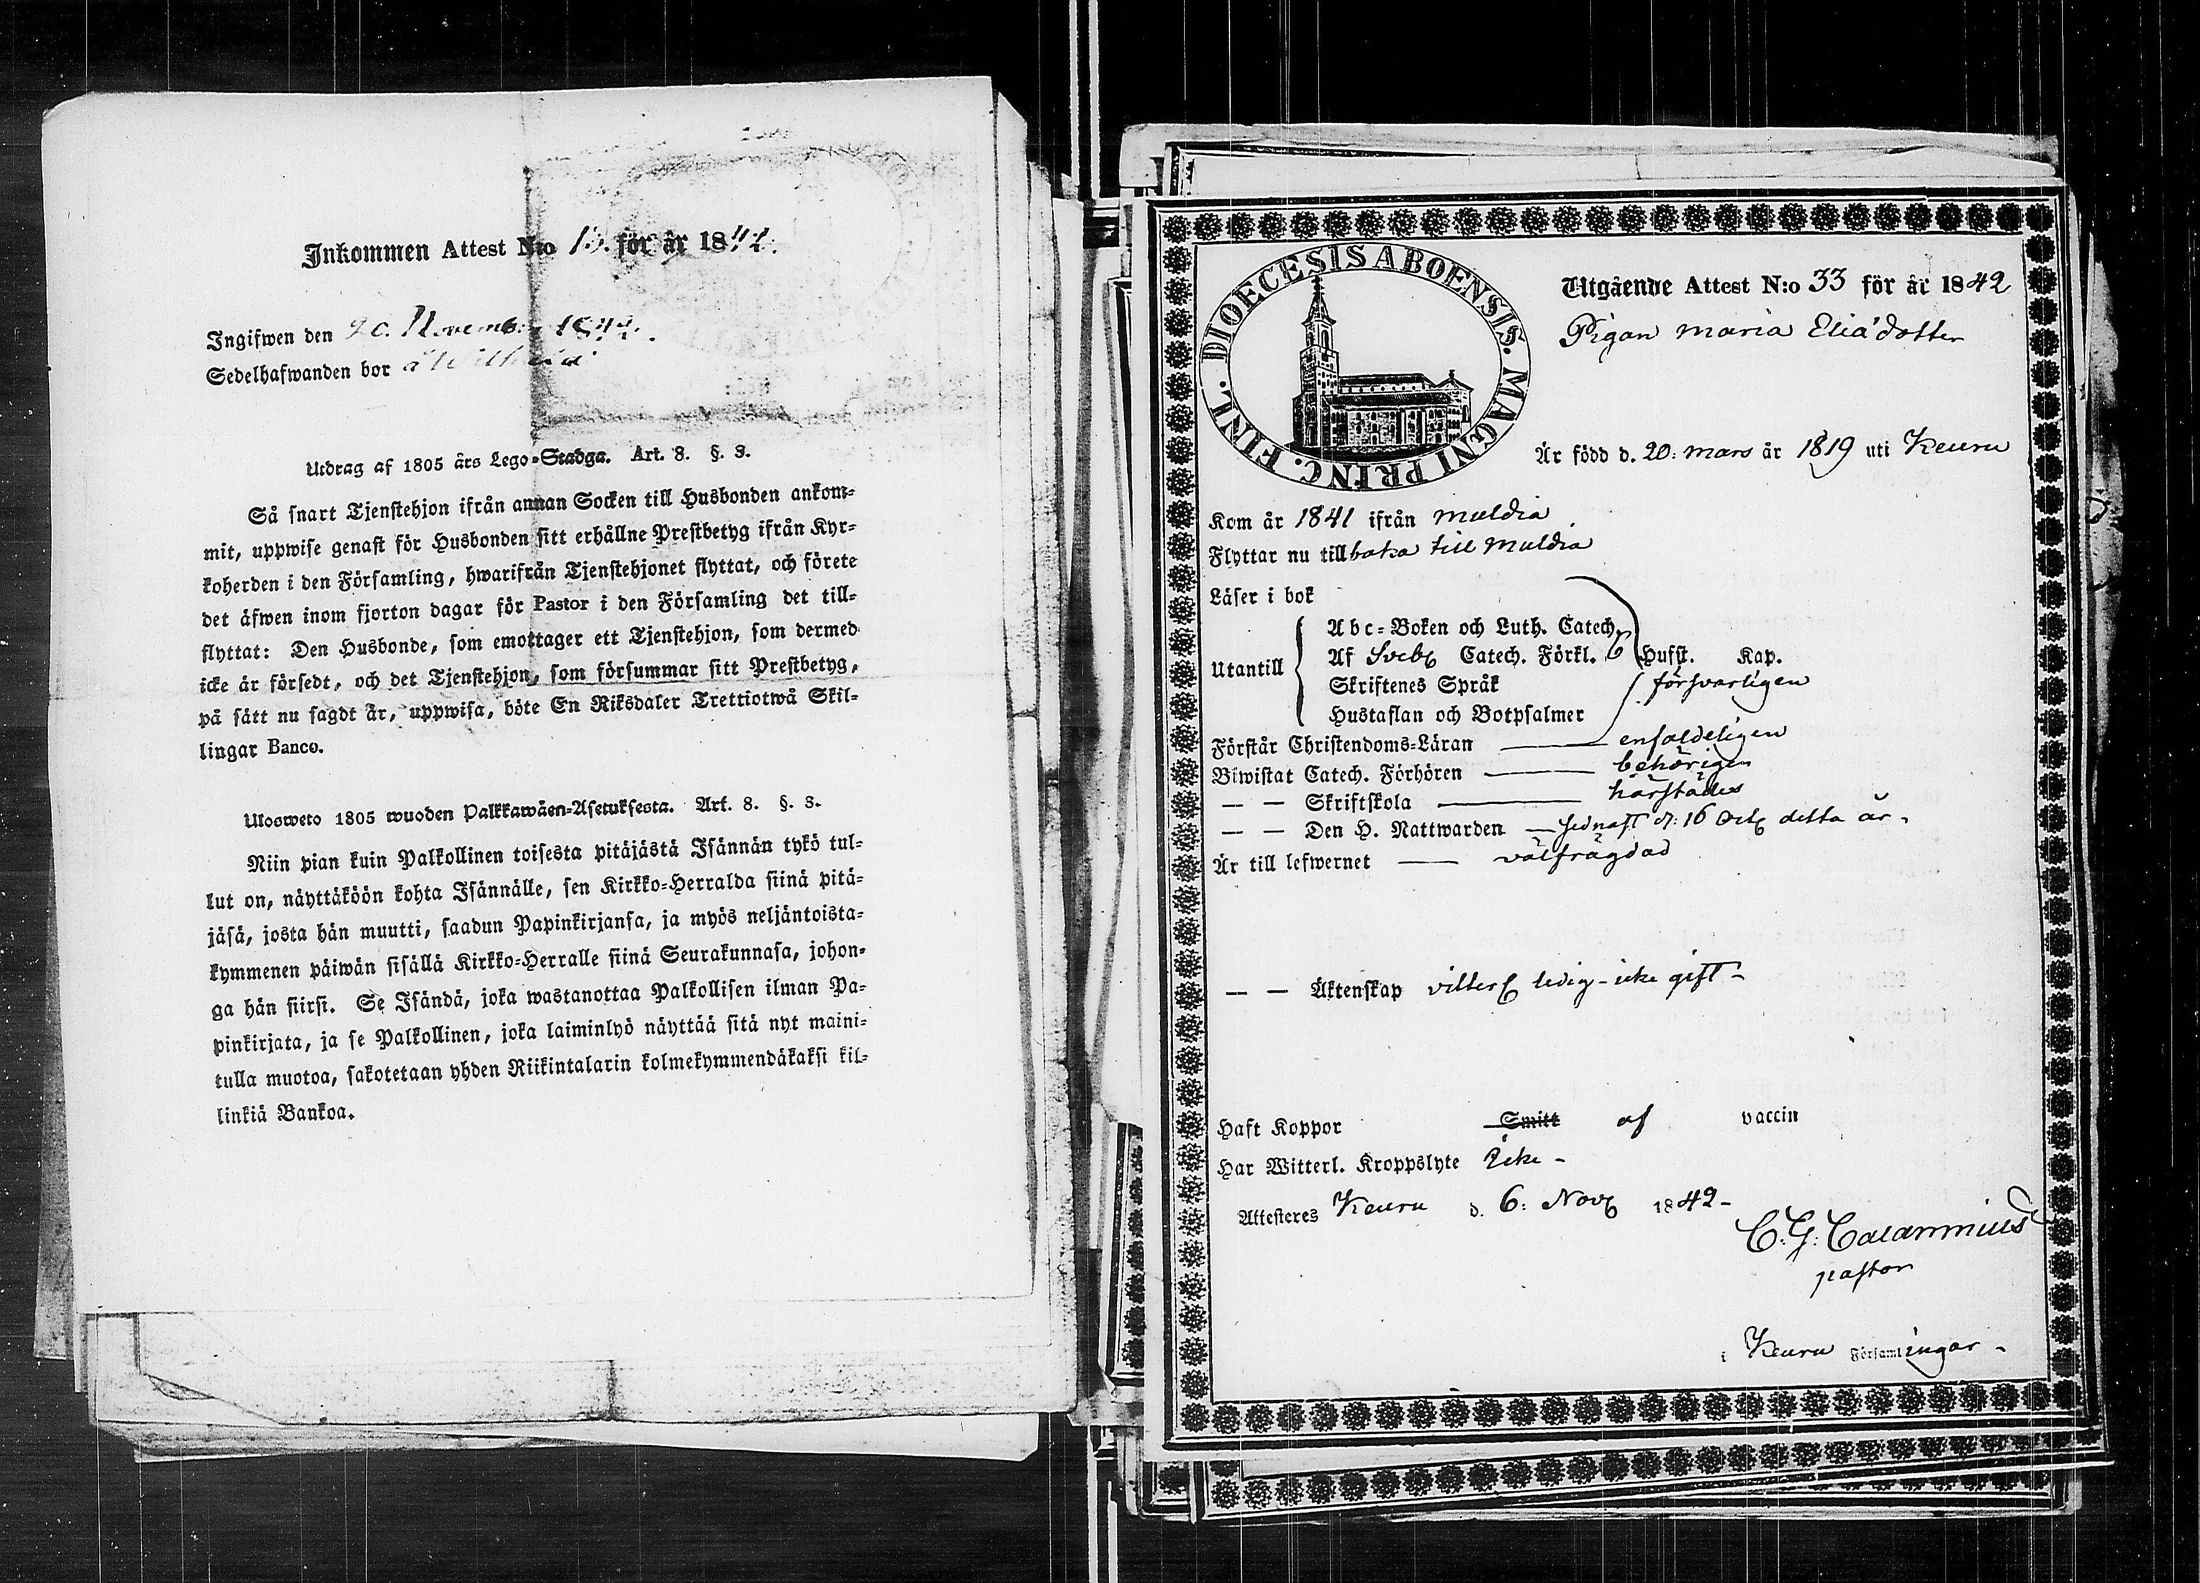 Inkommen Attest N:o 13. för år 1842.
Ingifwen den 20. Novemb: 1842.
Sedelhafwanden bor å
Utdrag af 1805 års Lego-Stadga. Art. 8. §. 3.
Så snart Tjenstehjon ifrån annan Socken till Husbonden ankom-
mit, uppwise genast för Husbonden sitt erhållne Prestbetyg ifrån Kyr-
koherden i den Församling, hwarifrån Tjenstehjonet flyttat, och förete
det äfwen inom fjorton dagar för Pastor i den Församling det till-
flyttat: Den Husbonde, som emottager ett Tjenstehjon, som dermed
icke är försedt, och det Tjenstehjon, som försummar sitt Prestbetyg,
på sätt nu sagdt är, uppwisa, böte En Riksdaler Trettiotwå Skil-
lingar Banco.
Ulosweto 1805 wuoden Palkkawäen-Asetuksesta. Art. 8. §. 3.
Niin pian kuin Palkollinen toisesta pitäjästä Isännän tykö tul-
lut on, näyttäköön kohta Isännälle, sen Kirkko-Herralda siinä pitä-
jäsä, josta hän muutti, saadun Papinkirjansa, ja myös neljäntoista-
kymmenen päiwän sisällä Kirkko-Herralle siinä Seurakunnasa, johon-
ga hän siirsi. Se Isändä, joka wastanottaa Palkollisen ilman Pa-
pinkirjata, ja se Palkollinen, joka laiminlyö näyttää sitä nyt maini-
tulla muotoa, sakotetaan yhden Riikintalarin kolmekymmendäkaksi kil-
linkiä Bankoa.
DIOECESIS ABOENSIS. MAGNI PRINC. FINL.
Utgående Attest N:o 33 för år 1842
Pigan Maria Eliädotter
Är född d. 20: mars år 1819 uti Keuru
Kom år 1841 ifrån Muldia
Flyttar nu tillbaka till Muldia
Läser i bok
Abc-Boken och Luth. Catech.
Utantill Af Sveb Catech. Förkl. Hufst. Kap.
Skriftenes Språk försvarligen
Hustaflan och Botpsalmer
Förstår Christendoms-Läran enfaldeligen
Biwistat Catech. Förhören behörigen
— — Skriftskola härstädes
— — Den H. Nattwarden sednast d: 16 Oct detta år.
Är till lefwernet välfrägdad
— — Äktenskap vitterl ledig - icke gift -
Haft Koppor Smitt af vaccin
Har Witterl. Kroppslyte Icke -
Attesteres Keuru d. 6: Nov 1842 -
C. G. Calamnius
pastor
i Keuru Församlingar -